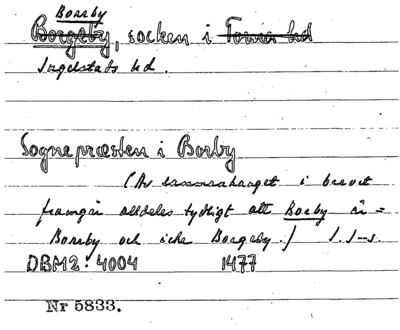 Borrby
Borgeby, socken i Torna hd
Ingelstads hd.
Sognepræsten i Borby
(Av sammanhanget i brevet
framgår alldeles tydligt att Borby är =
Borrby och icke Borgeby.)
DBM2: 4004 1477
Nr 5833.